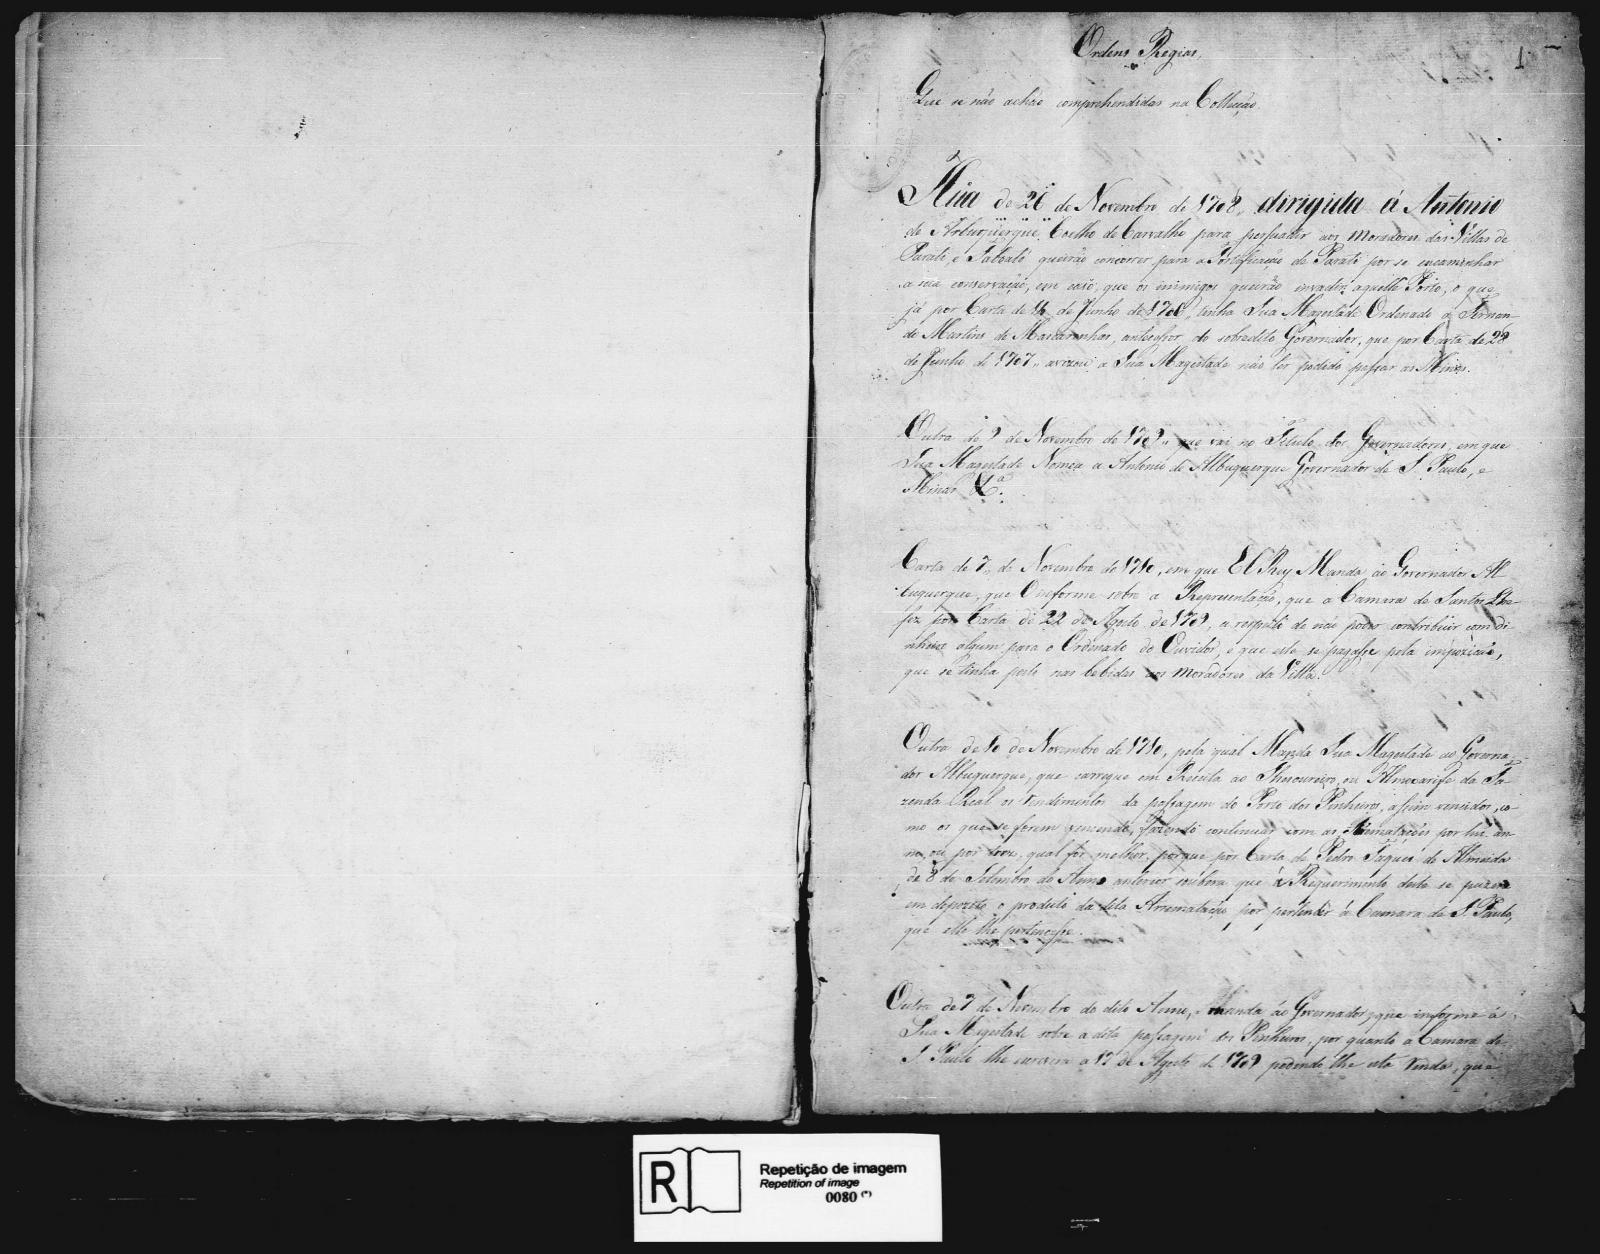 Ordens Regias,
1
Que se não achão comprehendidas na Collecção.
Hũa de 26 de Novembro de 1708, dirigida á Antonio
de Albuquerque Coelho de Carvalho para persuadir aos moradores das Villas de
Parati, e Taboaté queirão concorrer para a Fortificação de Parati por se encaminhar
a sua conservação, em caso, que os inimigos queirão invadir aquelle Porto, o que
já por Carta de de Junho de 1706, tinha Sua Magestade Ordenado a Fernan-
do Martins de Mascaranhas, antecessor do sobredito Governador, que por Carta de 28
de Junho de 1707,, avizou a Sua Magestade não ter podido passar as Minas.
Outra de 9 de Novembro de 1709,, que vai no Titulo dos Governadores, em que
Sua Magestade Nomea a Antonio de Albuquerque Governador de S. Paulo, e
Minas &.ª
Carta de 7,, de Novembro de 1710, em que El Rey Manda ao Governador Al-
buquerque, que Informe sobre a Reprezentação, que a Camara de Santos Lhe
fez por Carta de 22 de Agosto de 1709, a respeito de não poder contribuir com di-
nheiro algum para o Ordenado do Ouvidor, e que este se pagasse pela impozição,
que se tinha posto nas bebidas aos moradores da Villa.
Outra de 10 de Novembro de 1710, pela qual Manda Sua Magestade ao Governa-
dor Albuquerque, que carregue em Receita ao Thezoureiro, ou Almoxarife da Fa-
zenda Real os rendimentos da passagem do Porto dos Pinheiros, assim vencidos, co-
mo os que se forem vencendo, fazendo continuar com as Arematações por hũ an-
no, ou por trez, qual for melhor, porque por Carta de Pedro Taques de Almeida
de 8 de Setembro do Anno anterior soubera que á Requerimento deste se puzera
em depozito o producto da dita Arematação por pertender a Camara de S. Paulo,
que elle lhe pertencesse.
Outra de 7 de Novembro do dito Anno, manda ao Governador, que informe á
Sua Magestade sobre a dita passagem dos Pinheiros, por quanto a Camara de
S. Paulo lhe escrevera a 17 de Agosto de 1709 pedindo lhe esta renda, que
R
Repetição de imagem
Repetition of image
0080 (*)